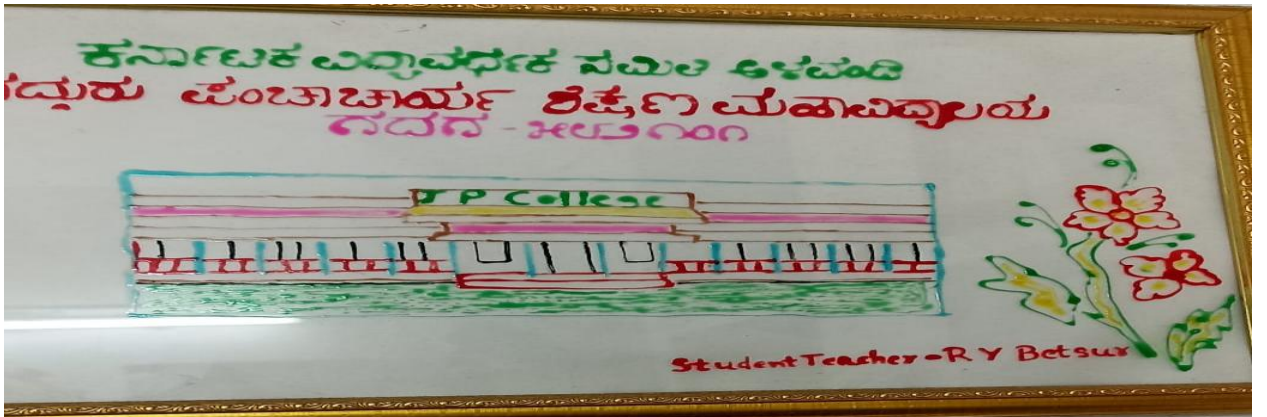 ಕರ್ನಾಟಕ ವಿದ್ಯಾವರ್ಧಕ ಸಮಿತಿ ಅಳವಂಡಿ
ಪಂಚಾಚಾರ್ಯ ಶಿಕ್ಷಣ ಮಹಾವಿದ್ಯಾಲಯ
ಗದಗ - ೫೮೨೧೦೧
J P College
Student Teacher - R Y Betsur